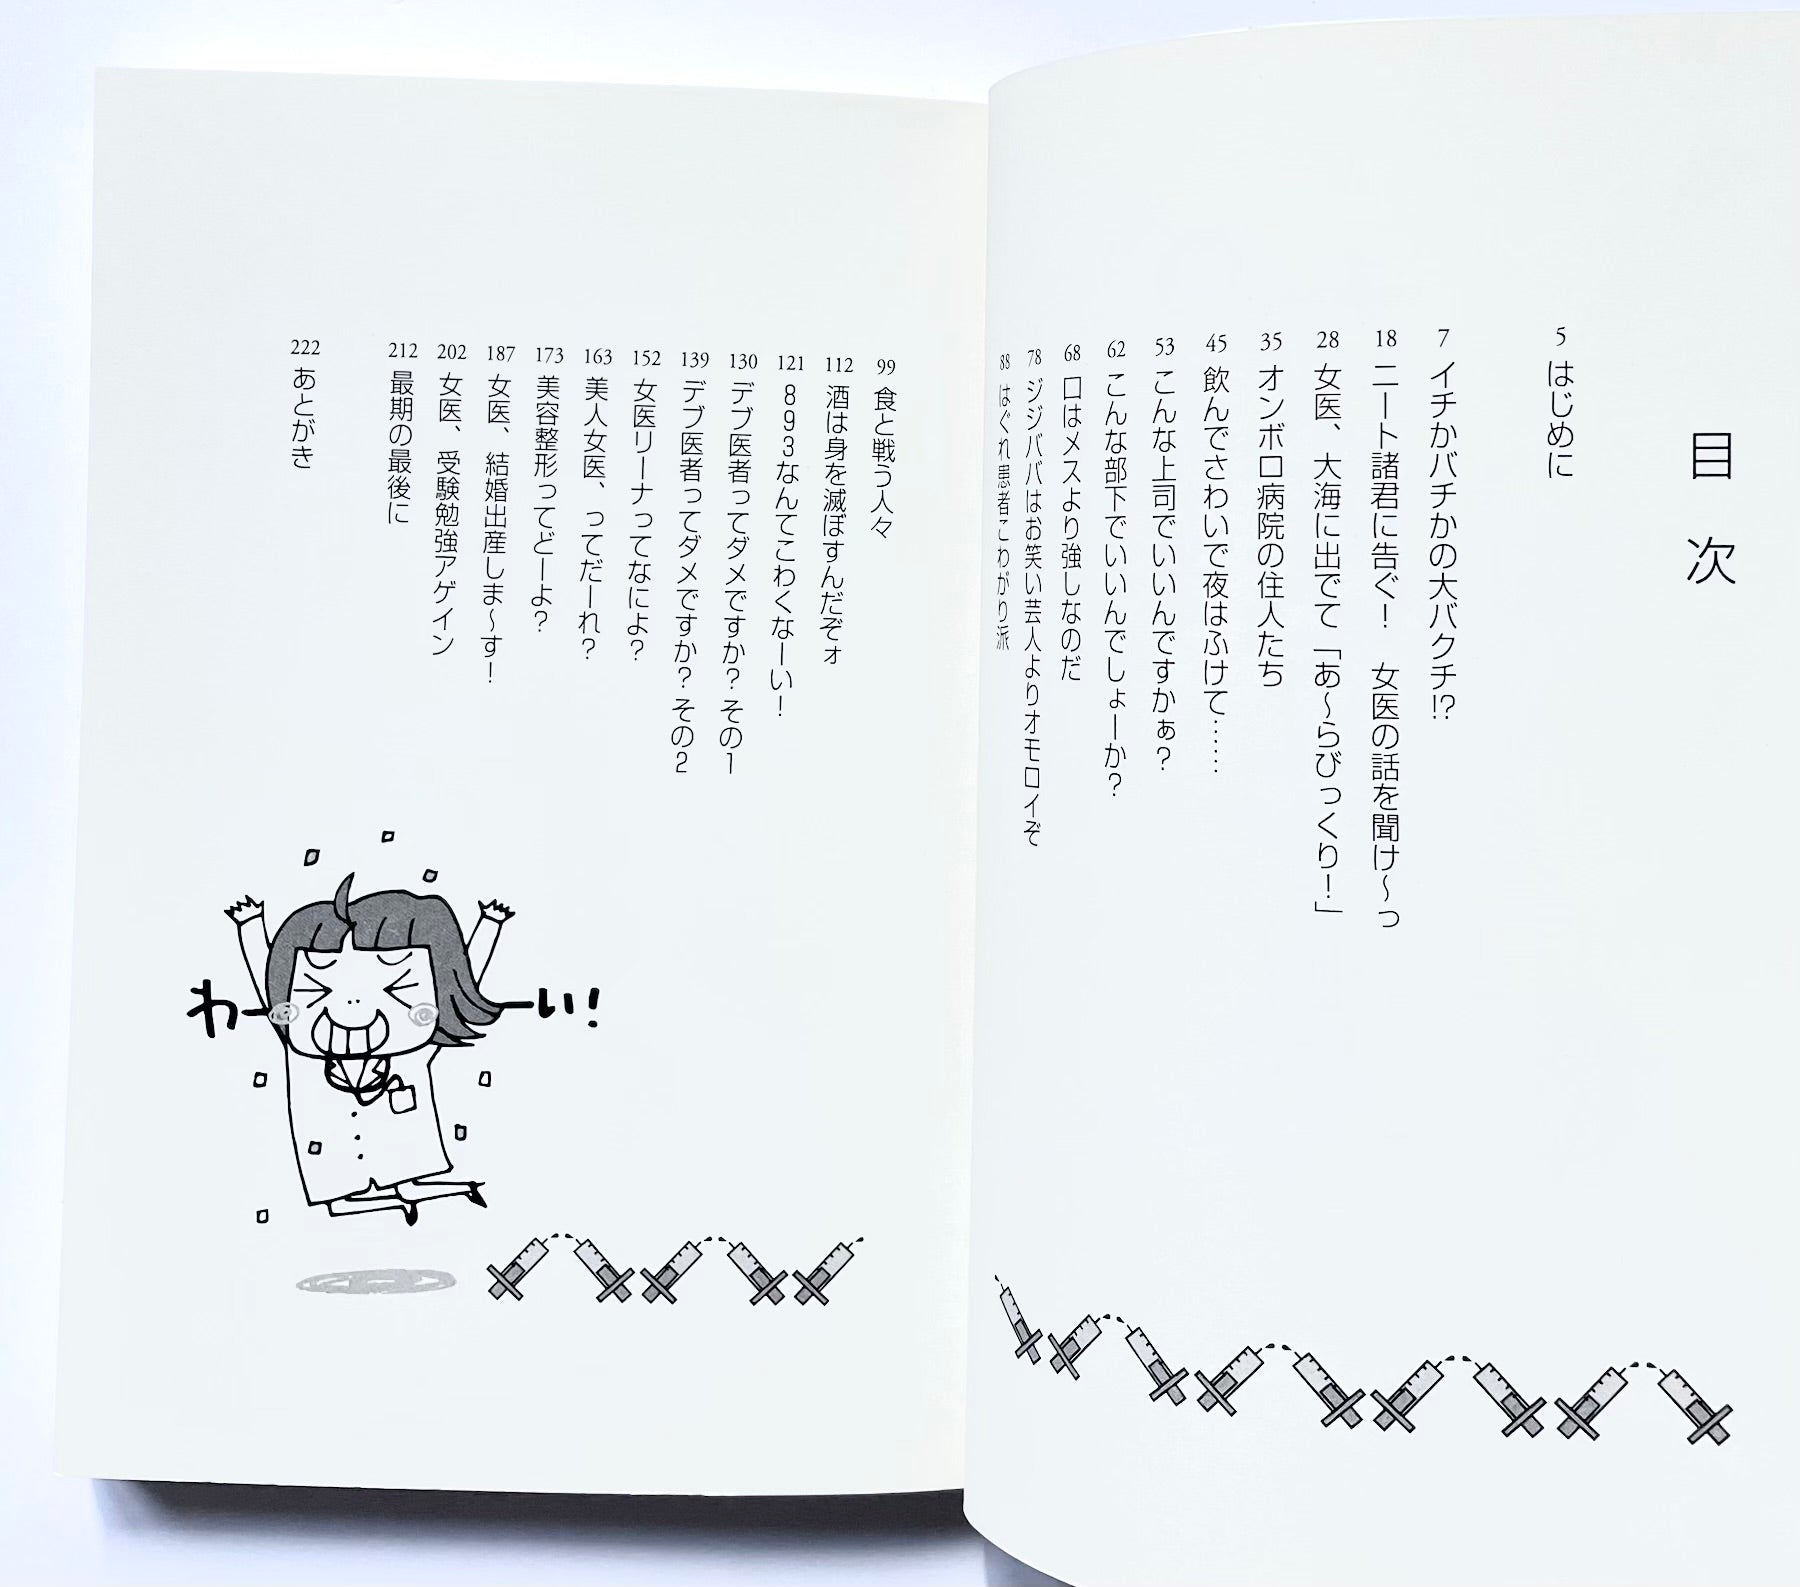 目次
5 はじめに
7 イチかバチかの大バクチ!?
18 ニート諸君に告ぐ！　女医の話を聞け〜っ
28 女医、大海に出でて「あ〜らびっくり！」
35 オンボロ病院の住人たち
45 飲んでさわいで夜はふけて……
53 こんな上司でいいんですかぁ？
62 こんな部下でいいんでしょーか？
68 口はメスより強しなのだ
78 ジジババはお笑い芸人よりオモロイぞ
88 はぐれ患者こわがり派
99 食と戦う人々
112 酒は身を滅ぼすんだぞォ
121 893なんてこわくなーい！
130 デブ医者ってダメですか？その1
139 デブ医者ってダメですか？その2
152 女医リーナってなによ？
163 美人女医、ってだーれ？
173 美容整形ってどーよ？
187 女医、結婚出産しま〜す！
202 女医、受験勉強アゲイン
212 最期の最後に
222 あとがき
わーーい！